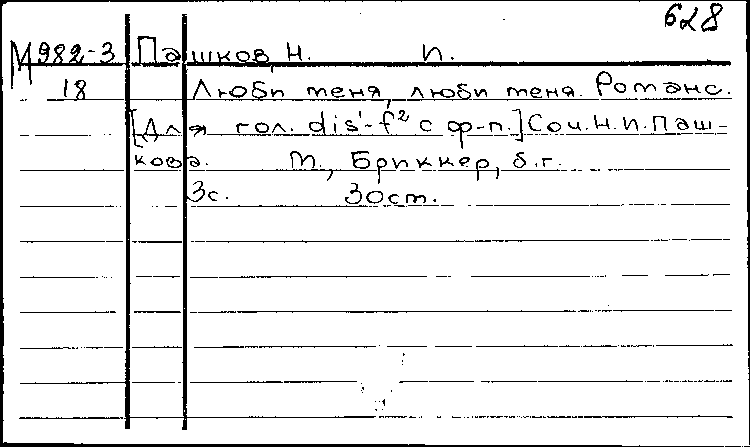 628
М982-3 Пашков, Н. И.
18 Люби меня, люби меня. Романс.
[Для гол. dis¹-f² с ф-п.] Соч. Н. И. Паш-
кова. М., Бриккер, б. г.
3с. 30ст.